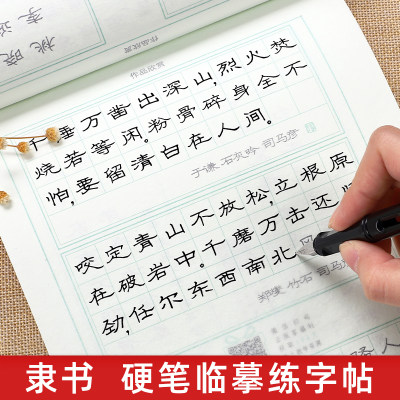 作品欣赏
作品欣赏
千锤万凿出深山,烈火焚
烧若等闲。粉骨碎身全不
怕,要留清白在人间。
于谦 石灰吟 司马彦
咬定青山不放松,立根原
在破岩中。千磨万击还
劲,任尔东西南北
郑燮 竹石 司马彦
隶书 硬笔临摹练字帖